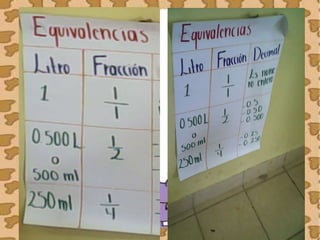 Equivalencias
Litro Fracción
1 1/1
0.500L
o
500 ml 1/2
250 ml 1/4
Equivalencias
Litro Fracción Decimal
1 1/1
0.500L
o
500 ml 1/2
- 0.5
- 0.50
- 0.500
250 ml 1/4
- 0.25
- 0.250